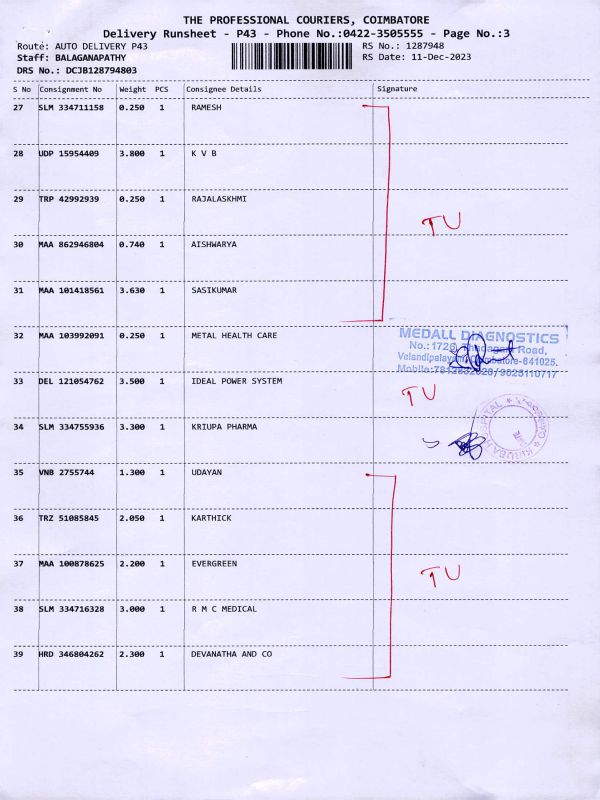 THE PROFESSIONAL COURIERS, COIMBATORE
Delivery Runsheet - P43 - Phone No.:0422-3505555 - Page No.:3
Route: AUTO DELIVERY P43 RS No.: 1287948
Staff: BALAGANAPATHY RS Date: 11-Dec-2023
DRS No.: DCJB128794803
S No Consignment No Weight PCS Consignee Details Signature
27 SLM 334711158 0.250 1 RAMESH
28 UDP 15954409 3.800 1 K V B
29 TRP 42992939 0.250 1 RAJALASKHMI
TU
30 MAA 862946804 0.740 1 AISHWARYA
31 MAA 101418561 3.630 1 SASIKUMAR
32 MAA 103992091 0.250 1 METAL HEALTH CARE
MEDALL DIAGNOSTICS
No.: Road,
33 DEL 121054762 3.500 1 IDEAL POWER SYSTEM
TU
34 SLM 334755936 3.300 1 KRIUPA PHARMA
HOSPITAL
35 VNB 2755744 1.300 1 UDAYAN
36 TRZ 51085845 2.050 1 KARTHICK
37 MAA 100878625 2.200 1 EVERGREEN
TU
38 SLM 334716328 3.000 1 R M C MEDICAL
39 HRD 346804262 2.300 1 DEVANATHA AND CO